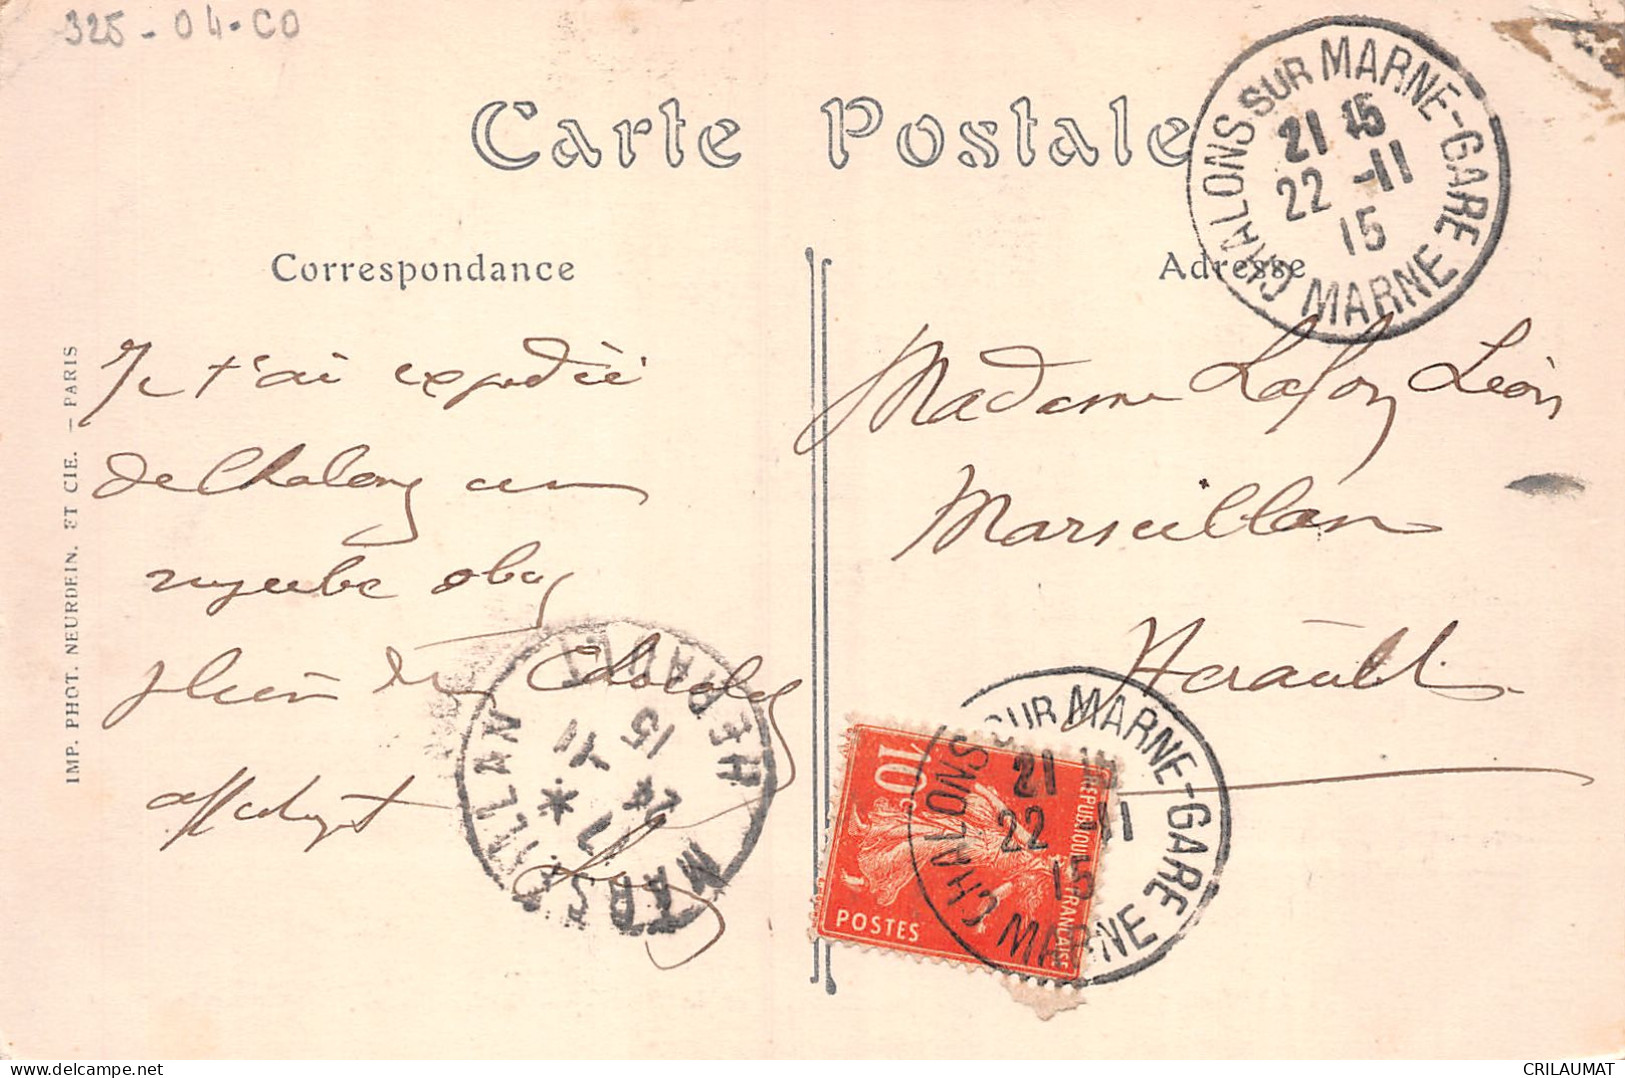 325-04-CO
Carte Postale
CHALONS SUR MARNE-GARE
21 15
22 -11
15
MARNE
Correspondance
Adresse
Je t'ai expédié
de Chalons un
superbe obus
plein de Chocolat
Madame Lafon Léon
Marseillan
Hérault
MARSEILLAN
HERAULT
7 *
24 -11
15
10c
POSTES
REPUBLIQUE FRANÇAISE
CHALONS SUR MARNE-GARE
21 15
22 -11
15
MARNE
IMP. PHOT. NEURDEIN. ET CIE. - PARIS
CRILAUMAT